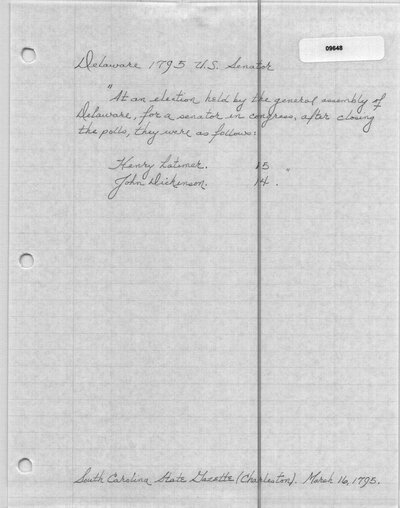 09648
Delaware 1795 U.S. Senator
"At an election held by the general assembly of
Delaware, for a senator in congress, after closing
the polls, they were as follows:
Henry Latimer. 15 "
John Dickinson. 14.
South Carolina State Gazette (Charleston). March 16, 1795.